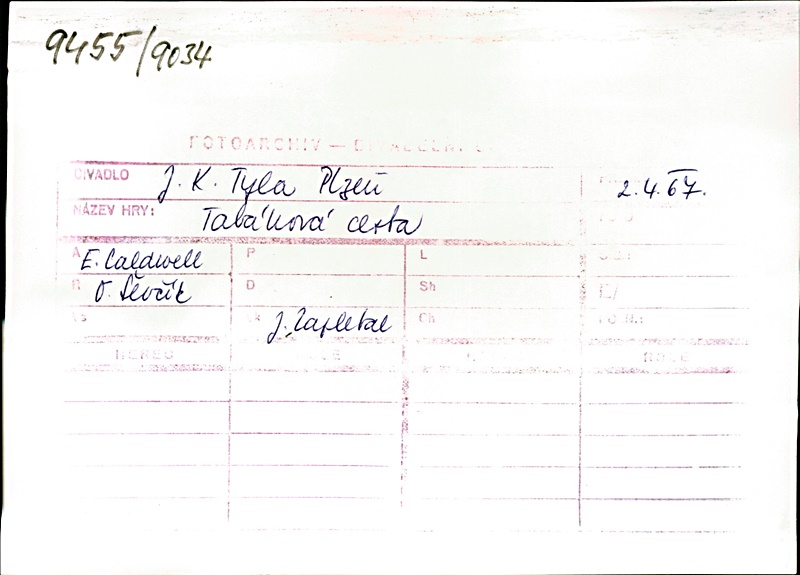 9455/9034
FOTOARCHIV —
DIVADLO J. K. Tyla Plzeň 2.4.67.
NÁZEV HRY: Tabáková cesta
A E. Caldwell P L
R O. Ševčík D Sh
J. Zapletal Ch
HEREC ROLE